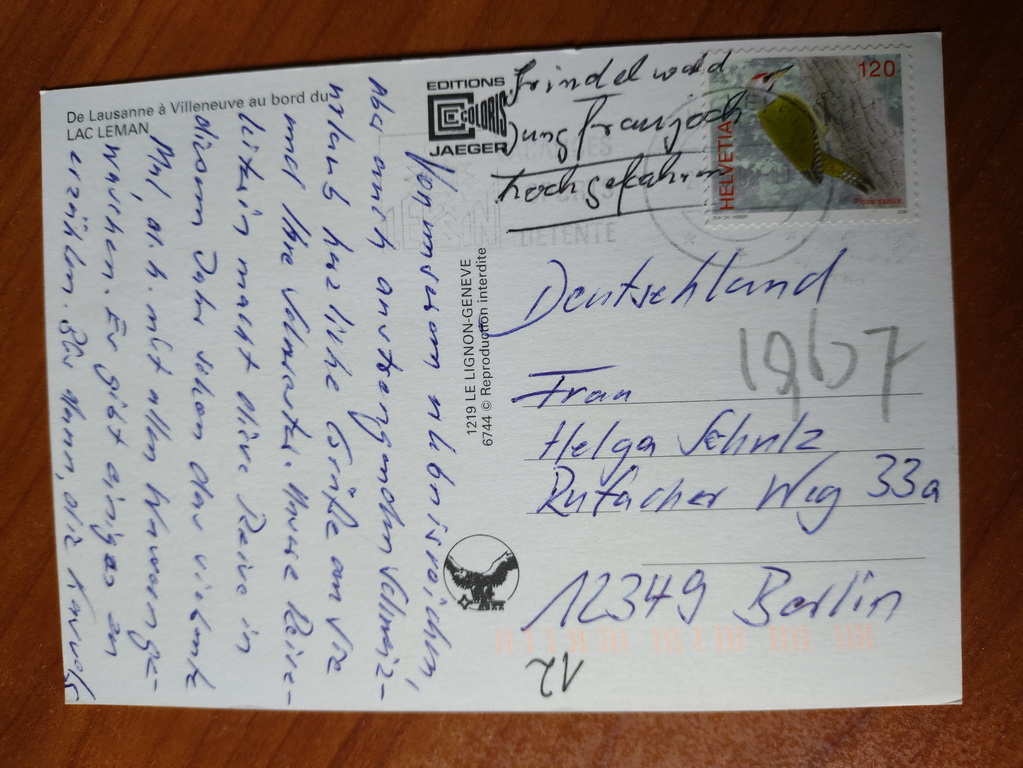 De Lausanne à Villeneuve au bord du
LAC LEMAN
EDITIONS
COLORIS
JAEGER
Grindelwald
Jungfraujoch
hochgefahren
HELVETIA
120
Picus viridis
VACANCES
SPORTS
DETENTE
Von unserem erlebnisreichen,
aber auch anstrengenden Schweiz-
urlaub herzliche Grüße an Sie
und Ihre Schwester. Unsere Reise-
leiterin macht diese Reise in
diesem Jahr schon das vierte
Mal, d. h. mit allen Wassern ge-
waschen. Es gibt einiges zu
erzählen.
1219 LE LIGNON-GENEVE
6744 © Reproduction interdite
Deutschland
1967
Frau
Helga Schulz
Rufacher Weg 33a
12349 Berlin
12